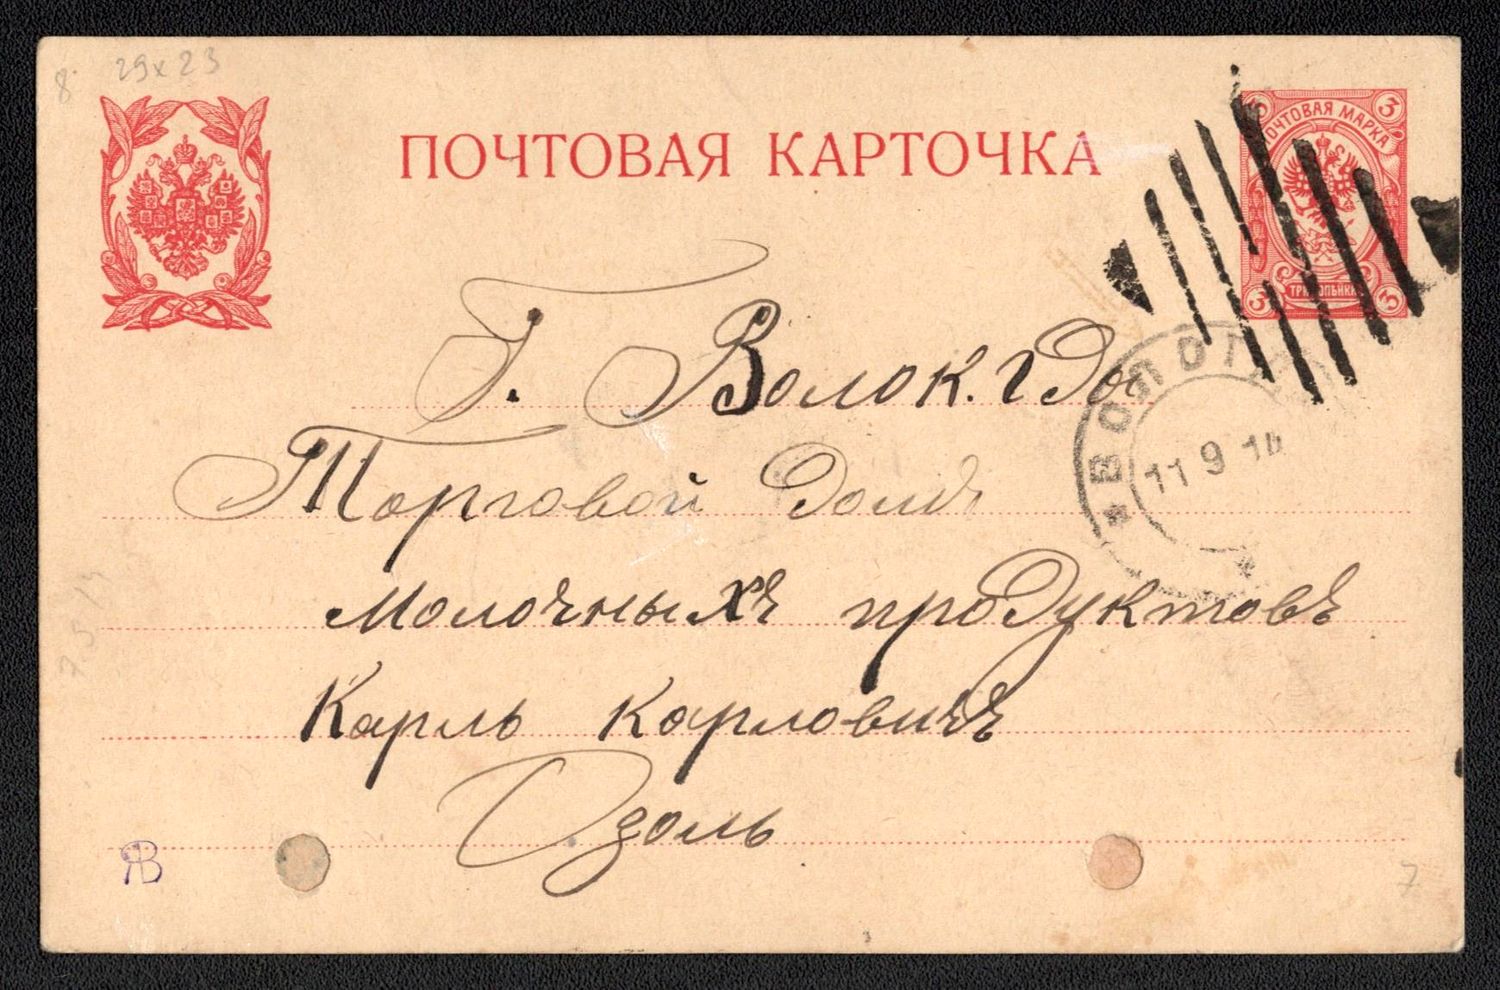 8 29x23
ПОЧТОВАЯ КАРТОЧКА
3 3
ПОЧТОВАЯ МАРКА
ТРИ КОПѢЙКИ
3 3
Г. Волок.гДа
ВОЛОГДА
11 9 14
Торговой Домъ
Молочныхъ продуктовъ
Карль Карловичъ
Озоль
ЯВ
7